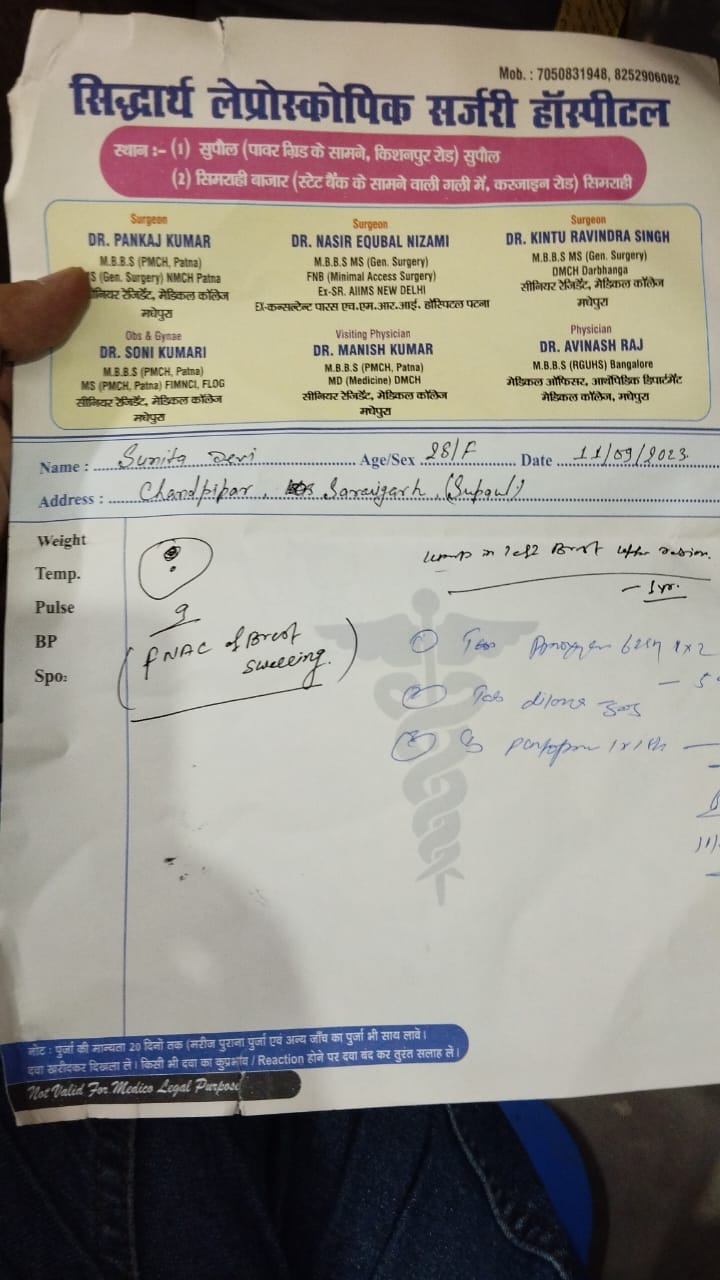 Mob. : 7050831948, 8252906082
सिद्धार्थ लेप्रोस्कोपिक सर्जरी हॉस्पीटल
स्थान :- (1) सुपौल (पावर ग्रिड के सामने, किशनपुर रोड) सुपौल
(2) सिमराही बाजार (स्टेट बैंक के सामने वाली गली में, करजाइन रोड) सिमराही
Surgeon
DR. PANKAJ KUMAR
M.B.B.S (PMCH, Patna)
(Gen. Surgery) NMCH Patna
रेजिडेंट, मेडिकल कॉलेज
मधेपुरा
Surgeon
DR. NASIR EQUBAL NIZAMI
M.B.B.S MS (Gen. Surgery)
FNB (Minimal Access Surgery)
Ex-SR. AIIMS NEW DELHI
EX-कन्सल्टेन्ट पारस एच.एम.आर.आई. हॉस्पिटल पटना
Surgeon
DR. KINTU RAVINDRA SINGH
M.B.B.S MS (Gen. Surgery)
DMCH Darbhanga
सीनियर रेजिडेंट, मेडिकल कॉलेज
मधेपुरा
Obs & Gynae
DR. SONI KUMARI
M.B.B.S (PMCH, Patna)
MS (PMCH, Patna) FIMNCI, FLOG
सीनियर रेजिडेंट, मेडिकल कॉलेज
मधेपुरा
Visiting Physician
DR. MANISH KUMAR
M.B.B.S (PMCH, Patna)
MD (Medicine) DMCH
सीनियर रेजिडेंट, मेडिकल कॉलेज
मधेपुरा
Physician
DR. AVINASH RAJ
M.B.B.S (RGUHS) Bangalore
मेडिकल ऑफिसर, आर्थोपेडिक डिपार्टमेंट
मेडिकल कॉलेज, मधेपुरा
Name : Sunita Devi Age/Sex 28/F Date 11/09/2023
Address : Chandpipar, Saraigarh, (Supaul)
Weight
Temp.
Pulse
BP
Spo2
FNAC of Breast
swelling.
Lump in Breast
- 1 yr.
① Tab 625 1x2
② Tab
③
नोट : पुर्जा की मान्यता 20 दिनों तक (मरीज पुराना पुर्जा एवं अन्य जाँच का पुर्जा भी साथ लावे।
दवा खरीदकर दिखला ले। किसी भी दवा का कुप्रभाव / Reaction होने पर दवा बंद कर तुरंत सलाह ले।
Not Valid For Medico Legal Purpose